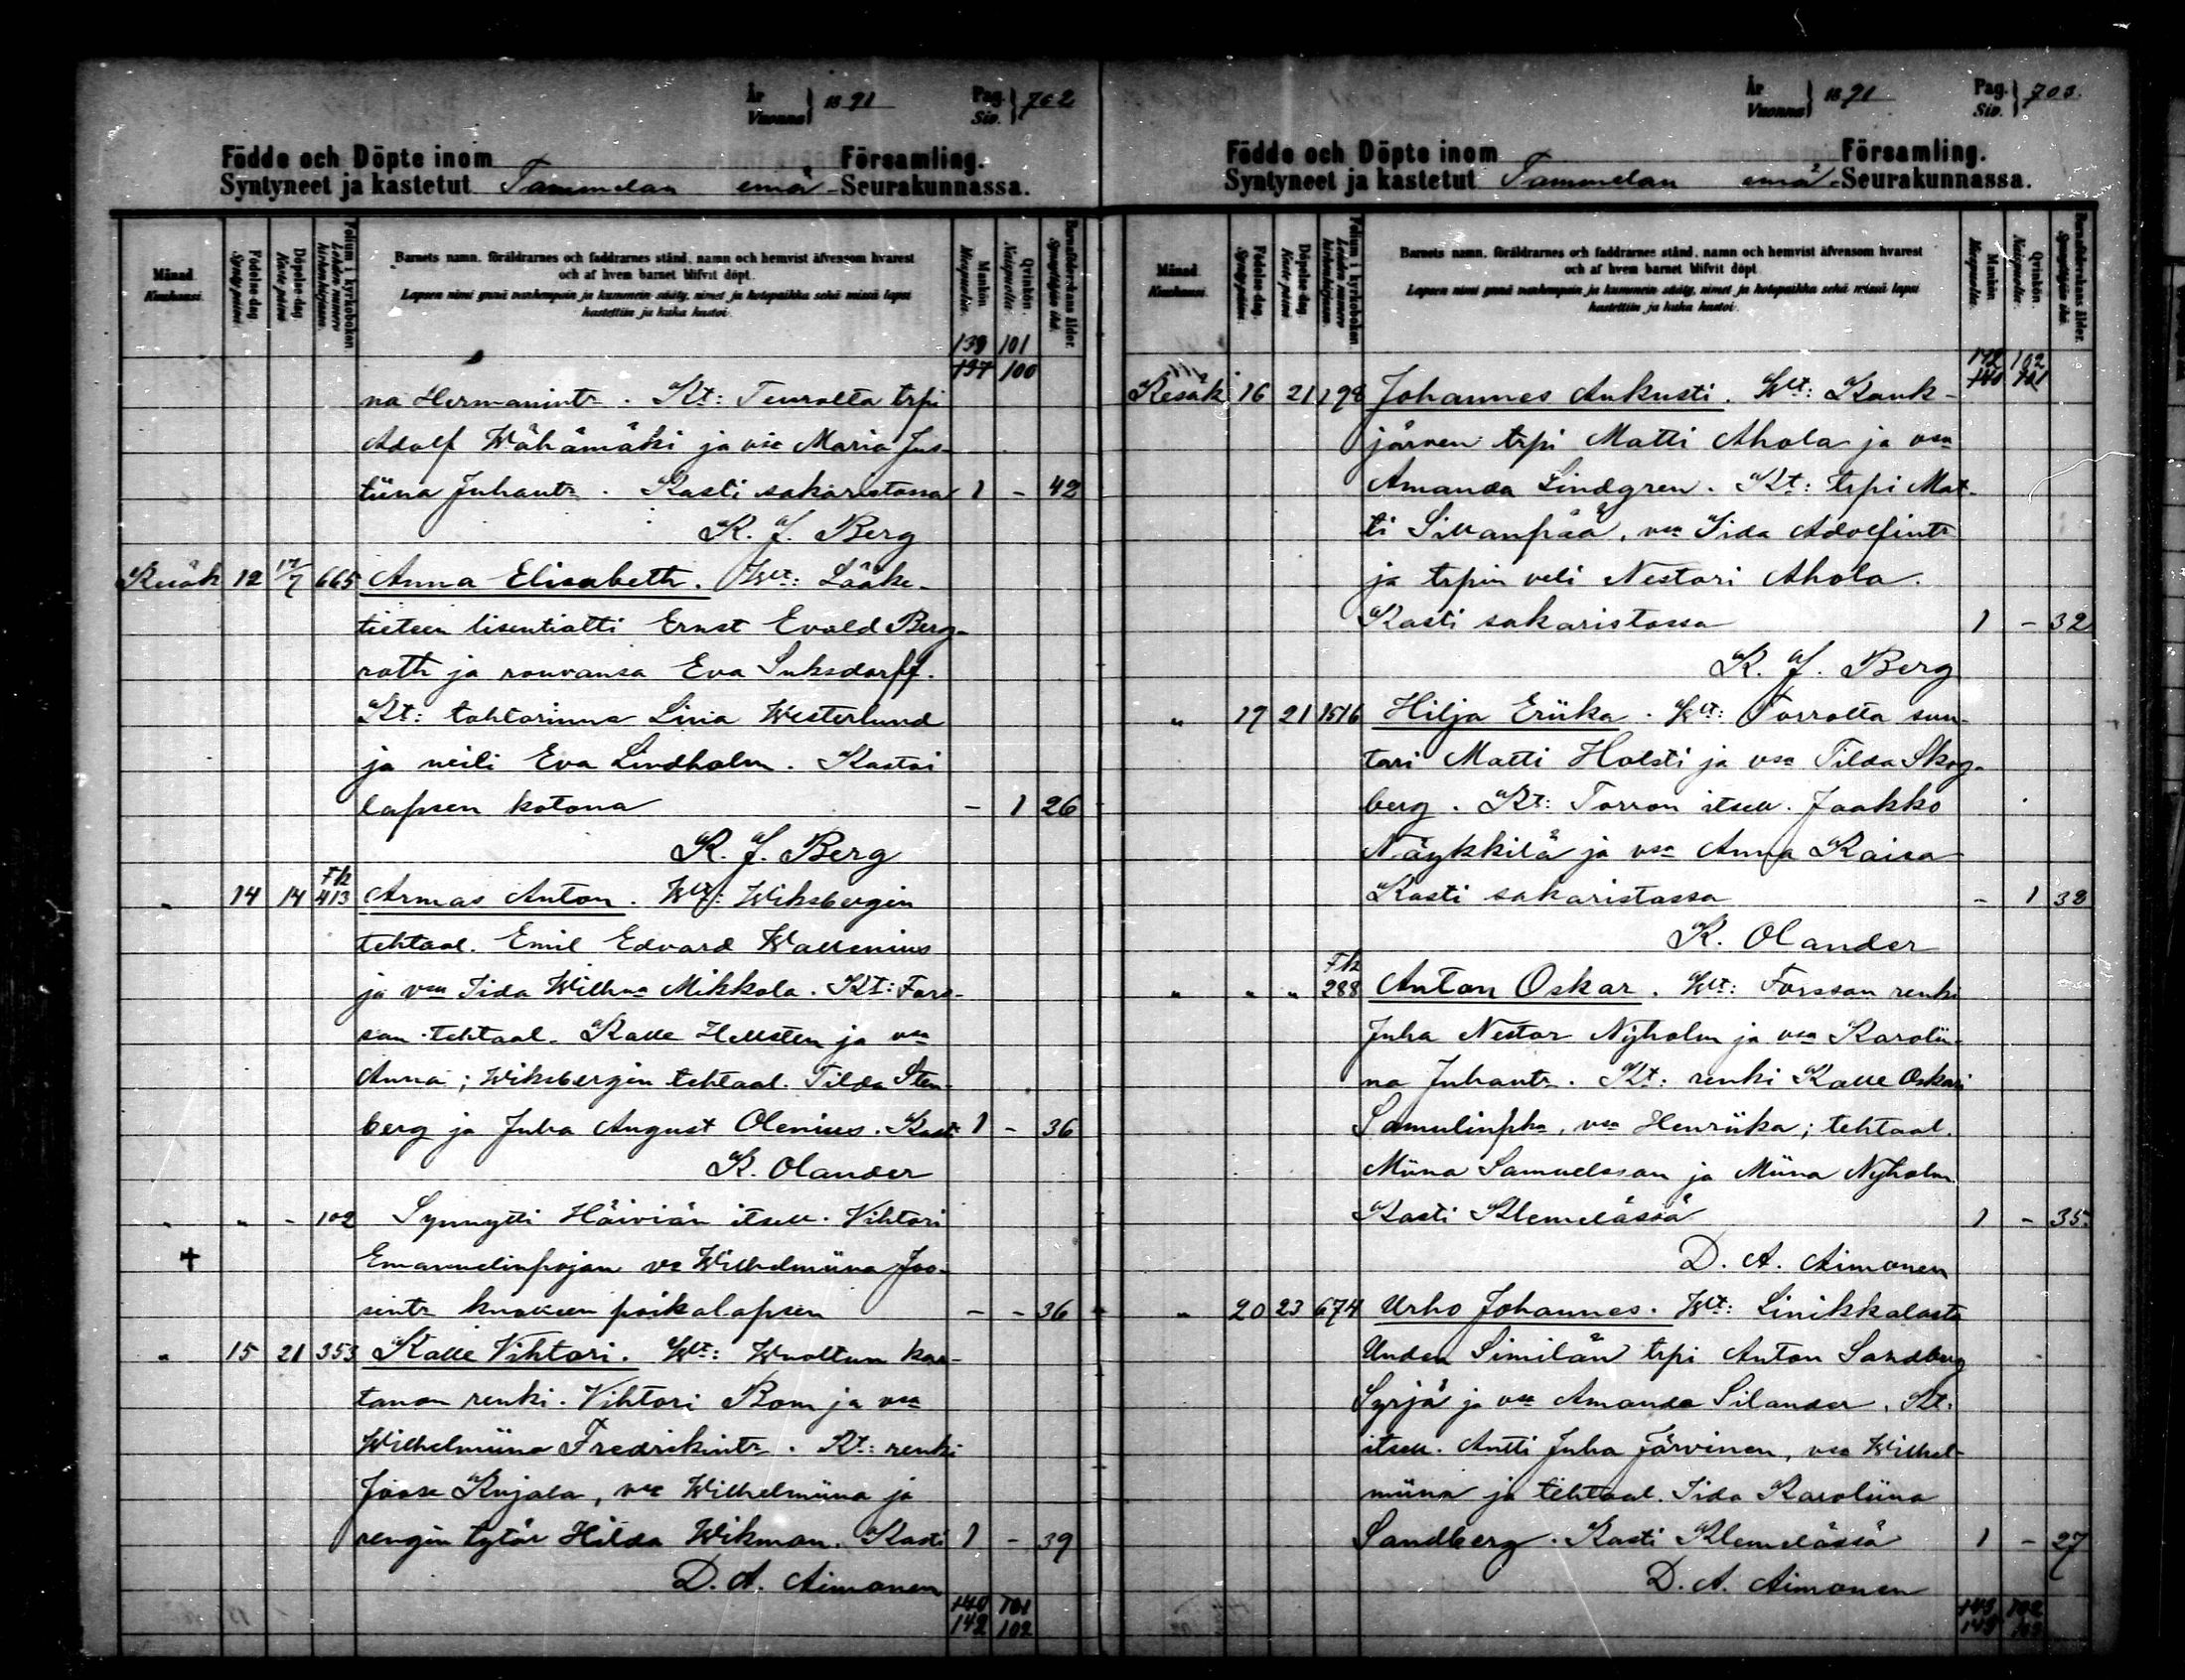 År
Vuonna } 1891 Pag.
Siv. } 702
Födde och Döpte inom Församling.
Syntyneet ja kastetut Tammelan emä- Seurakunnassa.
Månad. Kuukausi.
Födelse-dag. Syntypäivä
Döpelse-dag. Kastepäivä
Folium i kyrkoboken. Lehden numero kirkonkirjassa.
Barnets namn, föräldrarnes och faddrarnes stånd, namn och hemvist äfvensom hvarest
och af hvem barnet blifvit döpt.
Lapsen nimi ynnä vanhempain ja kummein sääty, nimet ja kotopaikka sekä missä lapsi
kastettiin ja kuka kastoi.
Mankön. Miespuolia.
Qvinkön. Naispuolia.
Barnaföderskans ålder. Synnyttäjän ikä.
139 101
137 100
na Hermanintr. Kt: Teurolta trpi
Adolf Wähämäki ja vsa Maria Jus-
tiina Juhantr. Kasti sakaristossa 1 - 42
K. J. Berg
Kesäk 12 17/7 665 Anna Elisabeth. Wt: Lääke-
tieteen lisentiatti Ernst Evald Berg-
roth ja rouvansa Eva Suksdorff.
Kt: tohtorinna Liina Westerlund
ja neiti Eva Lindholm. Kastoi
lapsen kotona - 1 26
K. J. Berg
" 14 14 Fk 413 Armas Anton. Wt: Wiksbergin
tehtaal. Emil Edvard Wallenius
ja vsa Iida Wilhna Mikkola. Kt: Fors-
san tehtaal. Kalle Hellsten ja vsa
Anna; Wiksbergin tehtaal. Tilda Sten-
berg ja Juha August Olenius. Kast 1 - 36
K. Olander
" " - 102 Synnytti Häiviän itsell. Vihtori
+ Emanuelinpojan vs Wilhelmiina Joo-
sintr kuolleen poikalapsen - - 36
" 15 21 353 Kalle Vihtori. Wt: Wuoltun kar-
tanon renki. Vihtori Bom ja vsa
Wilhelmiina Fredrikintr. Kt: renki
Joose Kujala, vsa Wilhelmiina ja
rengin tytär Hilda Wikman. Kasti 1 - 39
D. A. Aimonen
140 101
142 102
År
Vuonna } 1891 Pag.
Siv. } 703.
Födde och Döpte inom Församling.
Syntyneet ja kastetut Tammelan emä- Seurakunnassa.
Månad. Kuukausi.
Födelse-dag. Syntypäivä
Döpelse-dag. Kastepäivä
Folium i kyrkoboken. Lehden numero kirkonkirjassa.
Barnets namn, föräldrarnes och faddrarnes stånd, namn och hemvist äfvensom hvarest
och af hvem barnet blifvit döpt.
Lapsen nimi ynnä vanhempain ja kummein sääty, nimet ja kotopaikka sekä missä lapsi
kastettiin ja kuka kastoi.
Mankön. Miespuolia.
Qvinkön. Naispuolia.
Barnaföderskans ålder. Synnyttäjän ikä.
142 102
140 101
Kesäk 16 21 198 Johannes Aukusti. Wt: Kauk-
järven trpi Matti Ahola ja vsa
Amanda Lindgren. Kt: trpi Mat-
ti Sillanpää, vsa Iida Adolfintr
ja trpin veli Nestori Ahola.
Kasti sakaristossa 1 - 32
K. J. Berg
" 17 21 1516 Hilja Eriika. Wt: Torrolta sun-
tari Matti Holsti ja vsa Tilda Skog-
berg. Kt: Torron itsell. Jaakko
Näykkilä ja vsa Anna Kaisa
Kasti sakaristossa - 1 38
K. Olander
" " " Fk 288 Anton Oskar. Wt: Forssan renki
Juha Nestor Nyholm ja vsa Karolii-
na Juhantr. Kt: renki Kalle Oskari
Samulinpka, vsa Henriika; tehtaal.
Miina Samuelsson ja Miina Nyholm
Kasti Klemelässä 1 - 35.
D. A. Aimonen
" 20 23 674 Urho Johannes. Wt: Linikkalasta
Uuden Similän trpi Anton Sandberg
Syrjä ja vsa Amanda Silander. Kt.
itsell. Antti Juha Järvinen, vsa Wilhel-
miina ja tehtaal. Iida Karoliina
Sandberg. Kasti Klemelässä 1 - 27
D. A. Aimonen